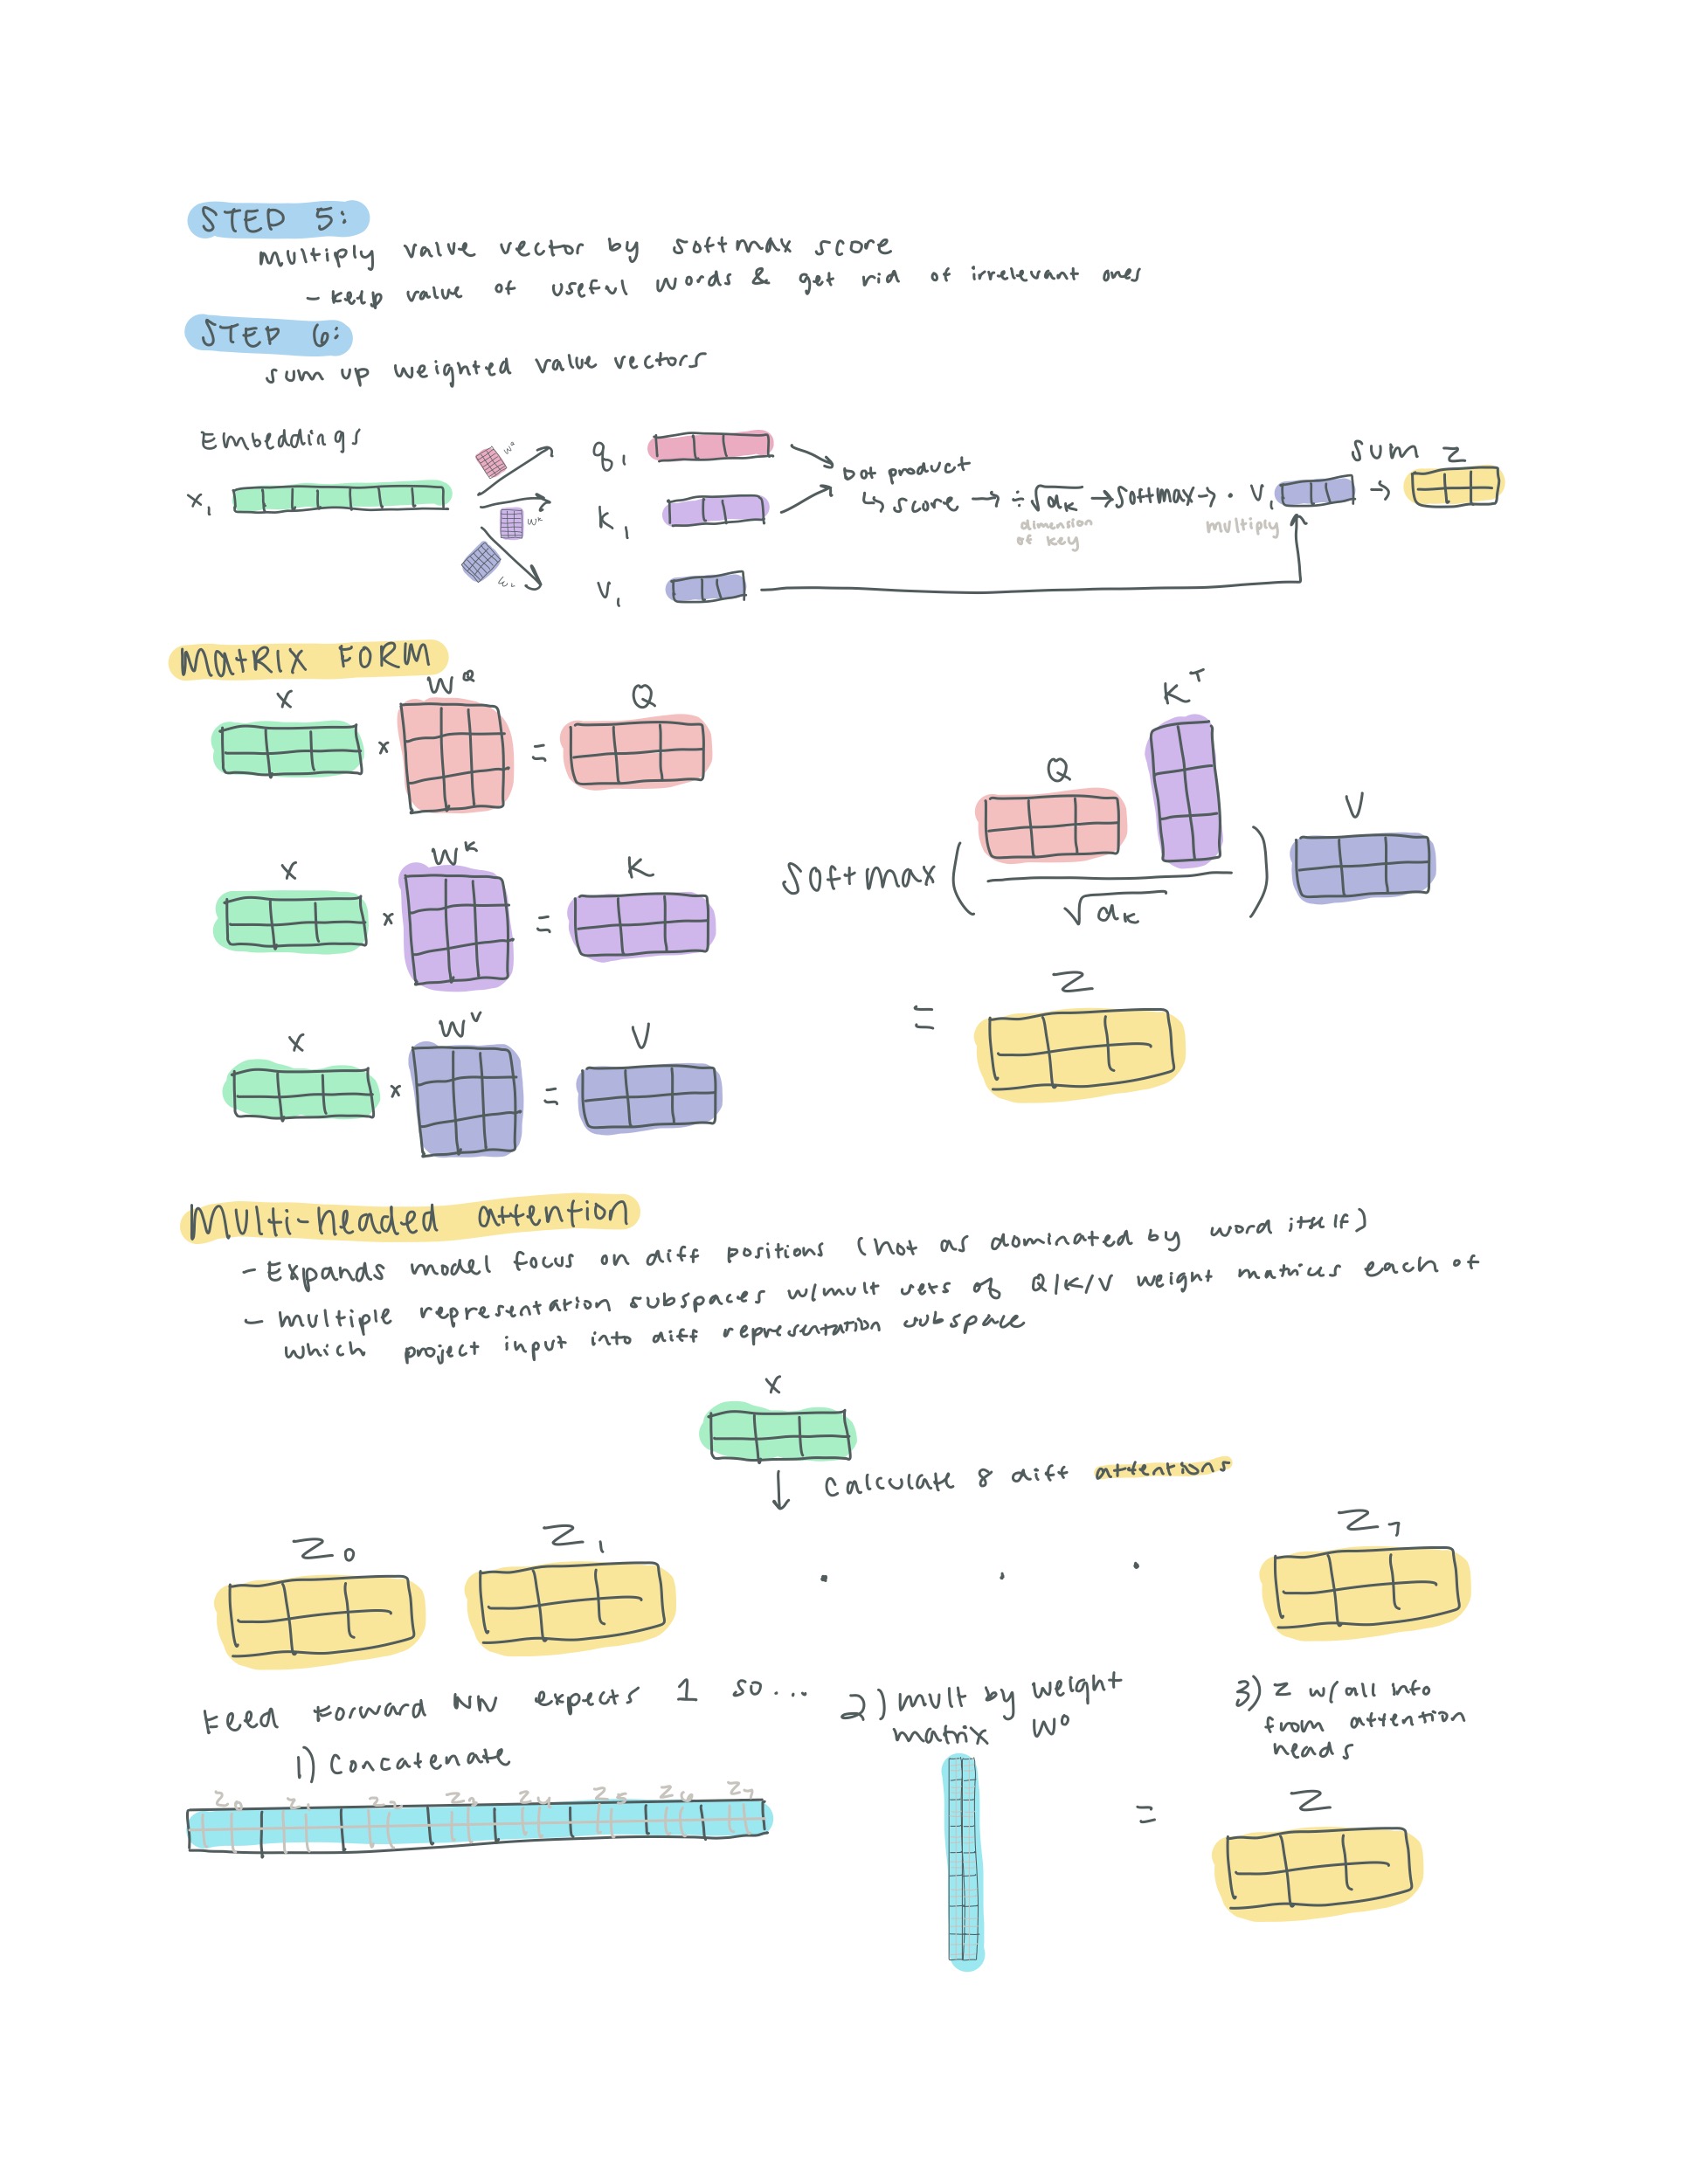 STEP 5:
multiply value vector by softmax score
- keep value of useful words & get rid of irrelevant ones
STEP 6:
sum up weighted value vectors
Embeddings
x₁
W^Q
q₁
W^K
k₁
W^V
v₁
Dot product
↳ score → ÷ √dₖ → softmax → · V₁ →
dimension
of key
multiply
sum z
MATRIX FORM
X × W^Q = Q
X × W^K = K
X × W^V = V
softmax ( Q K^T / √dₖ ) V
= Z
Multi-headed attention
- Expands model focus on diff positions (not as dominated by word itself)
- multiple representation subspaces w/mult sets of Q/K/V weight matrices each of
which project input into diff representation subspace
X
↓ Calculate 8 diff attentions
Z₀ Z₁ . . . Z₇
Feed Forward NN expects 1 so...
1) Concatenate
Z₀ Z₁ Z₂ Z₃ Z₄ Z₅ Z₆ Z₇
2) mult by weight
matrix W⁰
=
3) Z w/all info
from attention
heads
Z